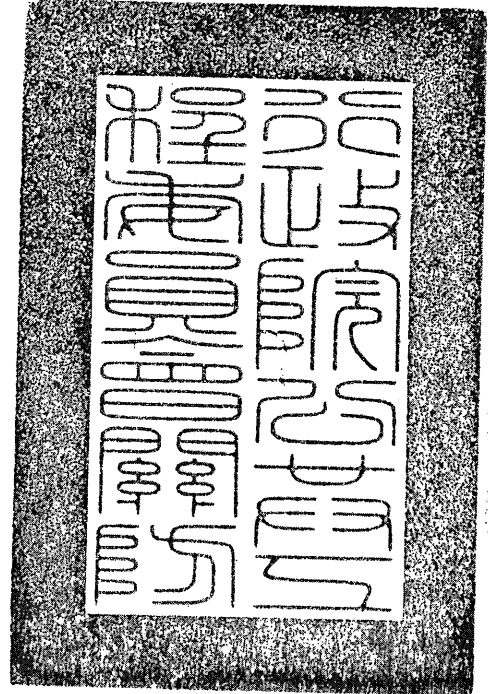 行政院公共工
程委員會關防